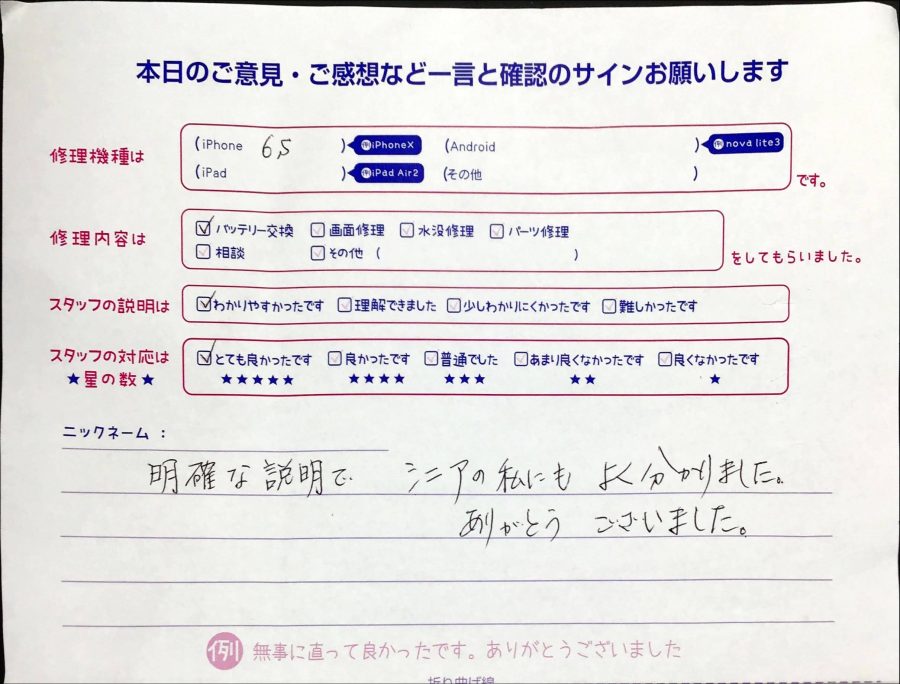 本日のご意見・ご感想など一言と確認のサインお願いします
修理機種は (iPhone 6S ) 例iPhoneX (Android ) 例nova lite3
(iPad ) 例iPad Air2 (その他 ) です。
修理内容は バッテリー交換 画面修理 水没修理 パーツ修理
相談 その他 ( ) をしてもらいました。
スタッフの説明は わかりやすかったです 理解できました 少しわかりにくかったです 難しかったです
スタッフの対応は とても良かったです 良かったです 普通でした あまり良くなかったです 良くなかったです
★星の数★ ★★★★★ ★★★★ ★★★ ★★ ★
ニックネーム：
明確な説明で シニアの私にも よく分かりました。
ありがとう ございました。
例 無事に直って良かったです。ありがとうございました
折り曲げ線